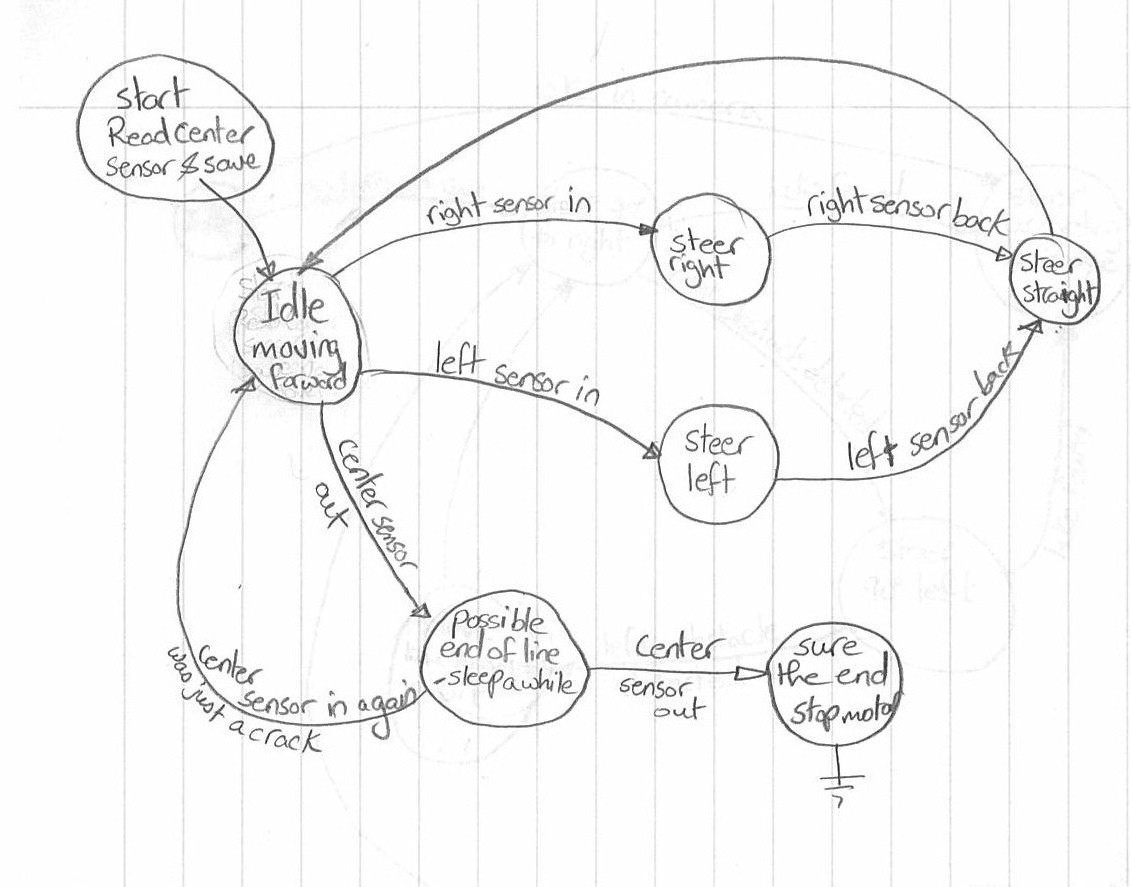 start
Read Center
sensor & save
right sensor in
steer
right
right sensor back
steer
straight
Idle
moving
forward
left sensor in
steer
left
left sensor back
center sensor
out
possible
end of line
- sleep a while
Center
sensor
out
sure
the end
stop motor
Center
sensor in again
was just a crack